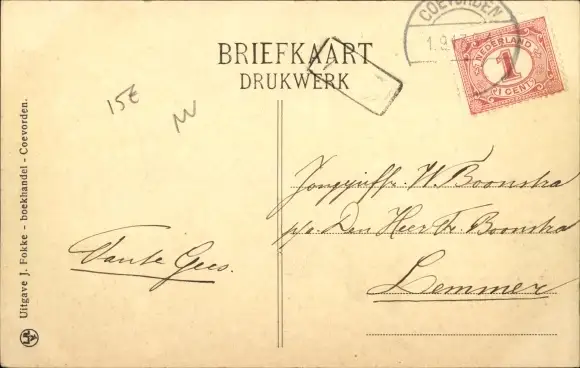 COEVORDEN
1.9.17
NEDERLAND
1
1 CENT
BRIEFKAART
DRUKWERK
15€
Jongejuffr. W. Boonstra
p/a. Den Heer Fr. Boonstra
Lemmer
Tante Gees.
Uitgave J. Fokke - boekhandel - Coevorden.